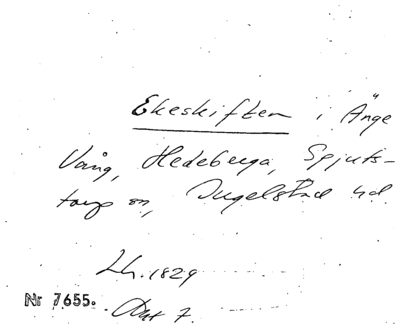 Ekeskiften i Änge
Vång, Hedeberga, Spjuts-
torp sn, Ingelstad hd.
Lh. 1829
Nr 7655.
Akt 7.